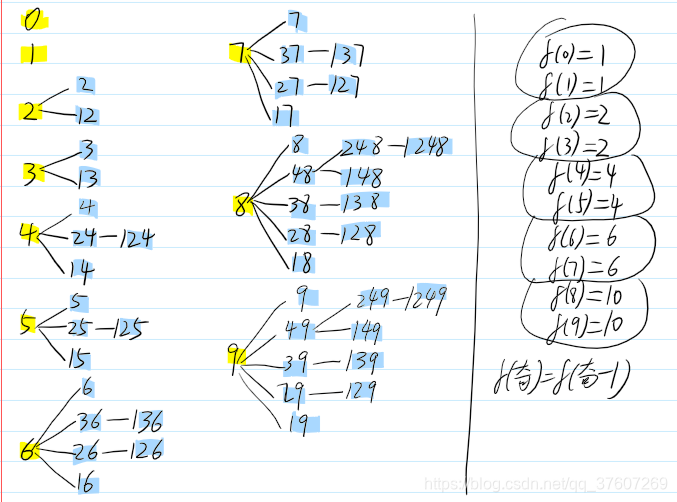 0
1
2
2
12
3
3
13
4
4
24—124
14
5
5
25—125
15
6
6
36—136
26—126
16
7
7
37—137
27—127
17
8
8
48
248—1248
148
38—138
28—128
18
9
9
49
249—1249
149
39—139
29—129
19
f(0)=1
f(1)=1
f(2)=2
f(3)=2
f(4)=4
f(5)=4
f(6)=6
f(7)=6
f(8)=10
f(9)=10
f(奇)=f(奇-1)
https://blog.csdn.net/qq_37607269